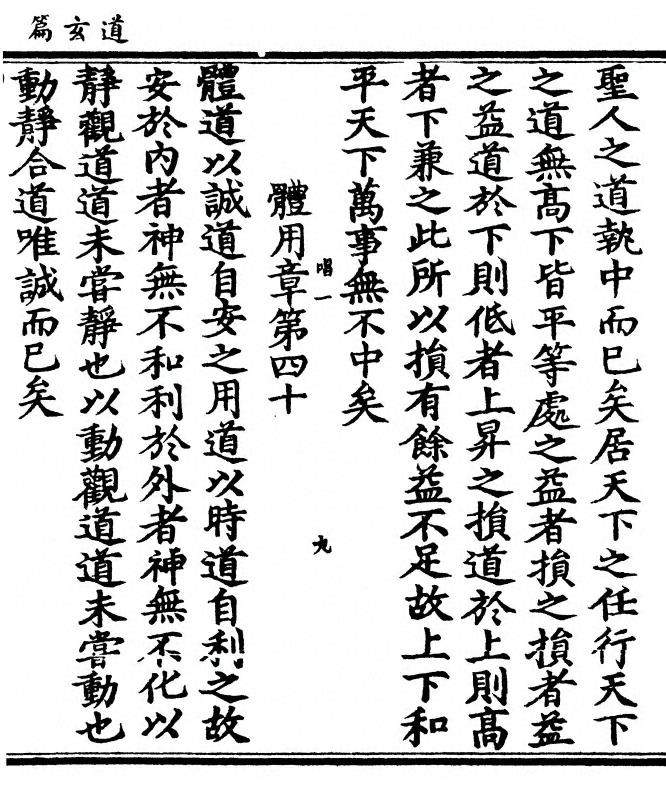 道玄篇
聖人之道執中而已矣居天下之任行天下
之道無高下皆平等處之益者損之損者益
之益道於下則低者上昇之損道於上則高
者下兼之此所以損有餘益不足故上下和
平天下萬事無不中矣
唱一
九
體用章第四十
體道以誠道自安之用道以時道自利之故
安於內者神無不和利於外者神無不化以
靜觀道道未嘗靜也以動觀道道未嘗動也
動靜合道唯誠而已矣